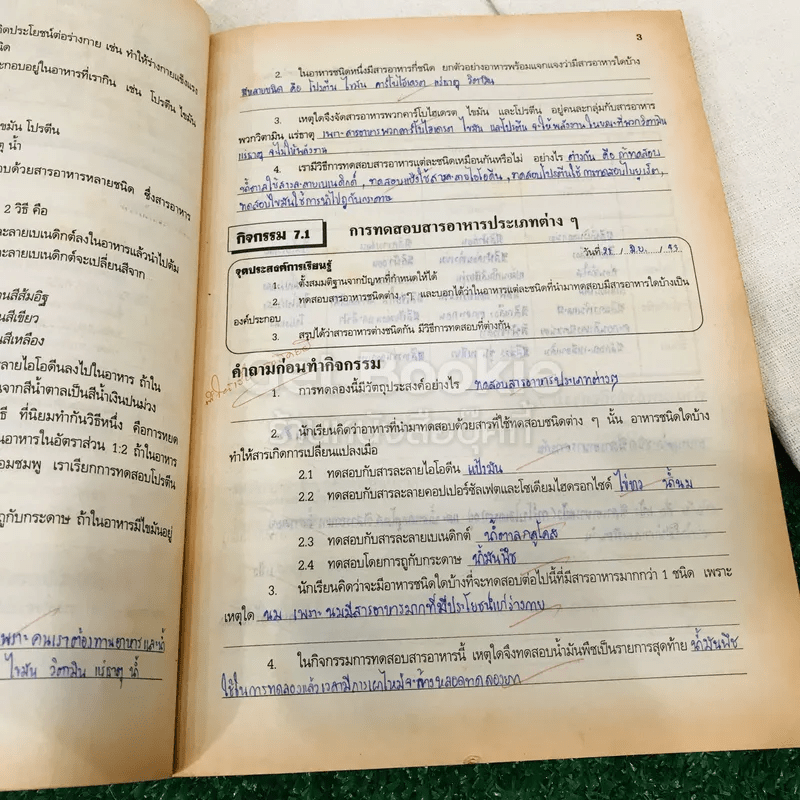 กิดประโยชน์ต่อร่างกาย เช่น ทำให้ร่างกายแข็งแรง
ชนิด
ะกอบอยู่ในอาหารที่เรากิน เช่น โปรตีน ไขมัน
ขมัน โปรตีน
ตุ น้ำ
อบด้วยสารอาหารหลายชนิด ซึ่งสารอาหาร
2 วิธี คือ
ะลายเบเนดิกต์ลงในอาหารแล้วนำไปต้ม
ะลายเบเนดิกต์จะเปลี่ยนสีจาก
นสีส้มอิฐ
นสีเขียว
นสีเหลือง
ะลายไอโอดีนลงไปในอาหาร ถ้าใน
นจากสีน้ำตาลเป็นสีน้ำเงินปนม่วง
ธี ที่นิยมทำกันวิธีหนึ่ง คือการหยด
นอาหารในอัตราส่วน 1:2 ถ้าในอาหาร
อมชมพู เราเรียกการทดสอบโปรตีน
ถูกับกระดาษ ถ้าในอาหารมีไขมันอยู่
เพราะ คนเราต้องทานอาหาร และน้ำ
ไขมัน วิตามิน แร่ธาตุ น้ำ
3
2. ในอาหารชนิดหนึ่งมีสารอาหารกี่ชนิด ยกตัวอย่างอาหารพร้อมแจกแจงว่ามีสารอาหารใดบ้าง
มีหลายชนิด คือ โปรตีน ไขมัน คาร์โบไฮเดรต แร่ธาตุ วิตามิน
3. เหตุใดจึงจัดสารอาหารพวกคาร์โบไฮเดรต ไขมัน และโปรตีน อยู่คนละกลุ่มกับสารอาหาร
พวกวิตามิน แร่ธาตุ เพราะสารอาหารพวกคาร์โบไฮเดรต ไขมัน และโปรตีน จะให้พลังงาน ในขณะที่พวกวิตามิน
แร่ธาตุ จะไม่ให้พลังงาน
4. เรามีวิธีการทดสอบสารอาหารแต่ละชนิดเหมือนกันหรือไม่ อย่างไร ต่างกัน คือ ถ้าทดสอบ
น้ำตาลใช้สารละลายเบเนดิกต์, ทดสอบแป้งใช้สารละลายไอโอดีน, ทดสอบโปรตีนใช้การทดสอบไบยูเร็ต,
ทดสอบไขมันใช้การนำไปถูกับกระดาษ
กิจกรรม 7.1 การทดสอบสารอาหารประเภทต่าง ๆ
วันที่ 25 / มิ.ย. / 43
จุดประสงค์การเรียนรู้
1. ตั้งสมมติฐานจากปัญหาที่กำหนดให้ได้
2. ทดสอบสารอาหารชนิดต่าง ๆ และบอกได้ว่าในอาหารแต่ละชนิดที่นำมาทดสอบมีสารอาหารใดบ้างเป็น
องค์ประกอบ
3. สรุปได้ว่าสารอาหารต่างชนิดกัน มีวิธีการทดสอบที่ต่างกัน
คำถามก่อนทำกิจกรรม
1. การทดลองนี้มีวัตถุประสงค์อย่างไร ทดสอบสารอาหารประเภทต่างๆ
2. นักเรียนคิดว่าอาหารที่นำมาทดสอบด้วยสารที่ใช้ทดสอบชนิดต่าง ๆ นั้น อาหารชนิดใดบ้าง
ทำให้สารเกิดการเปลี่ยนแปลงเมื่อ
2.1 ทดสอบกับสารละลายไอโอดีน แป้งมัน
2.2 ทดสอบกับสารละลายคอปเปอร์ซัลเฟตและโซเดียมไฮดรอกไซด์ ไข่ขาว น้ำนม
2.3 ทดสอบกับสารละลายเบเนดิกต์ น้ำตาลกลูโคส
2.4 ทดสอบโดยการถูกับกระดาษ น้ำมันพืช
3. นักเรียนคิดว่าจะมีอาหารชนิดใดบ้างที่จะทดสอบต่อไปนี้ที่มีสารอาหารมากกว่า 1 ชนิด เพราะ
เหตุใด นม เพราะ นมมีสารอาหารมากที่มีประโยชน์แก่ร่างกาย
4. ในกิจกรรมการทดสอบสารอาหารนี้ เหตุใดจึงทดสอบน้ำมันพืชเป็นรายการสุดท้าย น้ำมันพืช
ใช้ในการทดลองแล้วเวลามีการเผาไหม้จะล้างหลอดทดลองยาก
Bookie
ร้านหนังสือยุคที่